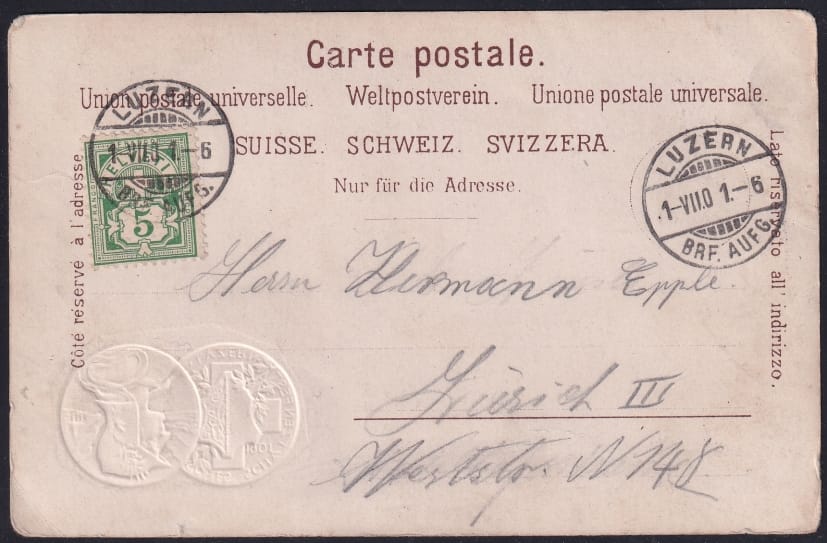 Carte postale.
Union postale universelle. Weltpostverein. Unione postale universale.
SUISSE. SCHWEIZ. SVIZZERA.
Nur für die Adresse.
Côté réservé à l'adresse
Lato riservato all' indirizzo.
LUZERN
1-VII.0 1.-6
BRF. AUFG.
HELVETIA
FRANCO
5
LUZERN
1-VII.0 1.-6
BRF. AUFG.
Herrn Hermann Epple.
Zürich III
N 148